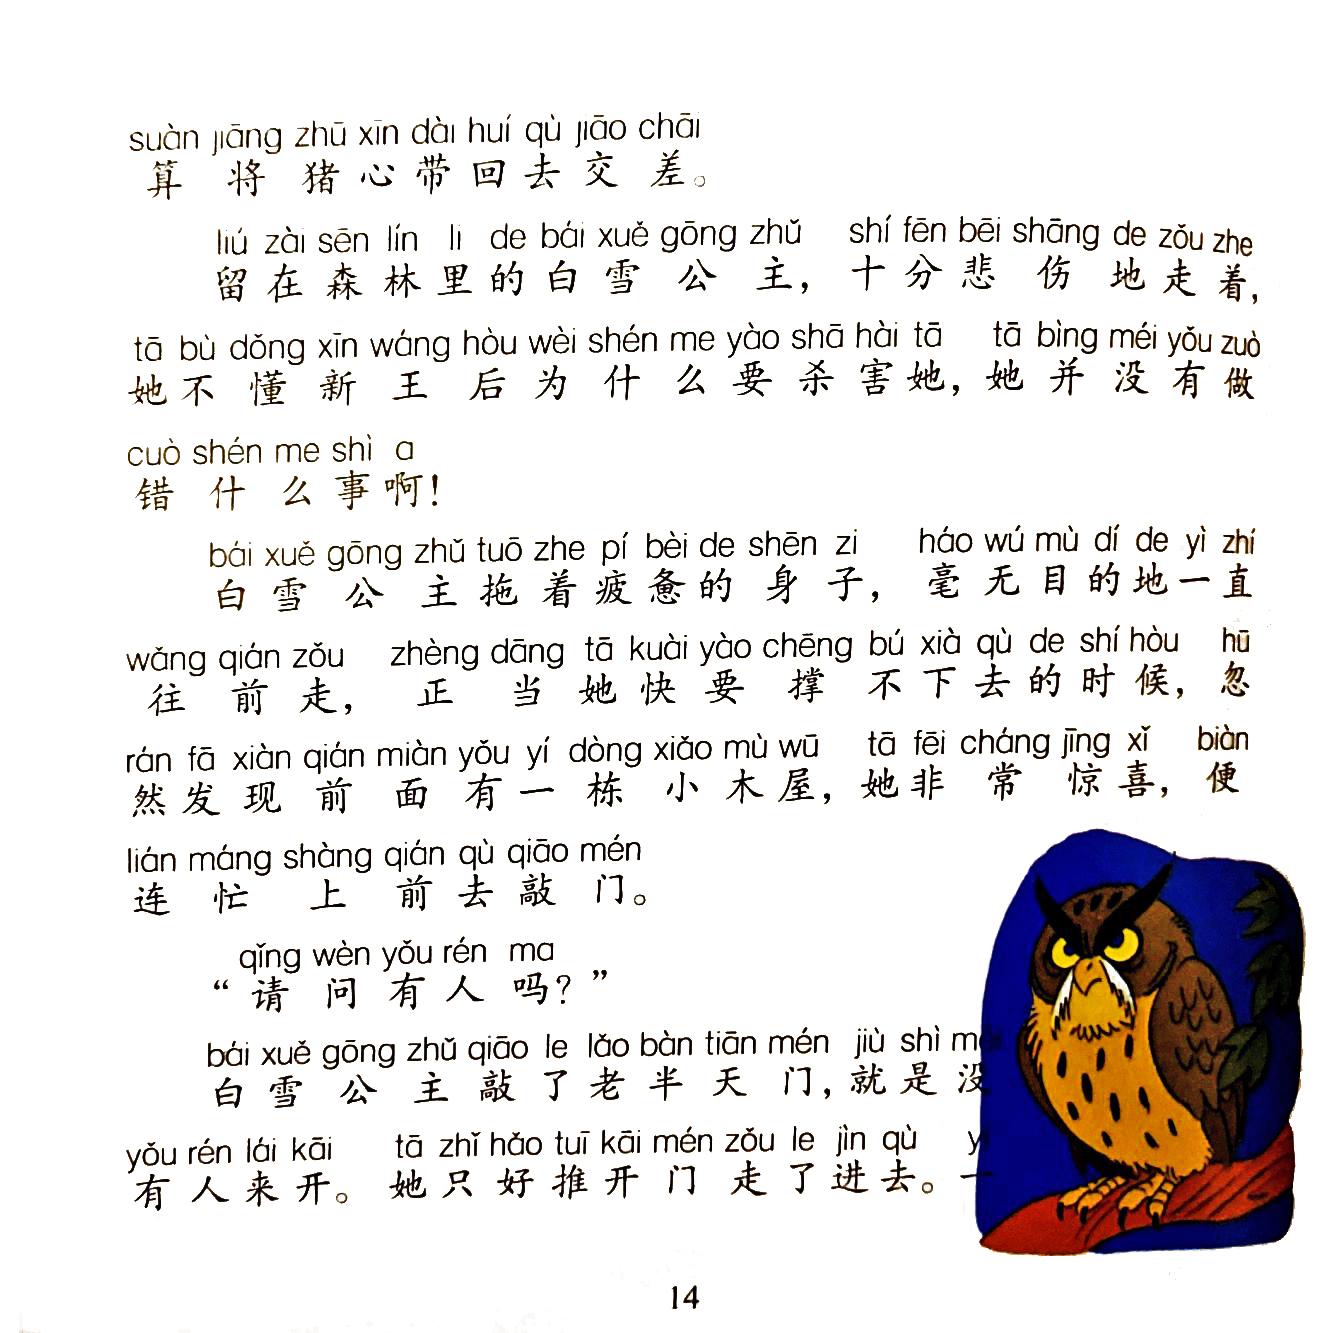 suàn jiāng zhū xīn dài huí qù jiāo chāi
算将猪心带回去交差。
liú zài sēn lín li de bái xuě gōng zhǔ shí fēn bēi shāng de zǒu zhe
留在森林里的白雪公主，十分悲伤地走着，
tā bù dǒng xīn wáng hòu wèi shén me yào shā hài tā tā bìng méi yǒu zuò
她不懂新王后为什么要杀害她，她并没有做
cuò shén me shì a
错什么事啊！
bái xuě gōng zhǔ tuō zhe pí bèi de shēn zi háo wú mù dí de yì zhí
白雪公主拖着疲惫的身子，毫无目的地一直
wǎng qián zǒu zhèng dāng tā kuài yào chēng bú xià qù de shí hòu hū
往前走，正当她快要撑不下去的时候，忽
rán fā xiàn qián miàn yǒu yí dòng xiǎo mù wū tā fēi cháng jīng xǐ biàn
然发现前面有一栋小木屋，她非常惊喜，便
lián máng shàng qián qù qiāo mén
连忙上前去敲门。
qǐng wèn yǒu rén ma
“请问有人吗？”
bái xuě gōng zhǔ qiāo le lǎo bàn tiān mén jiù shì méi
白雪公主敲了老半天门，就是没
yǒu rén lái kāi tā zhǐ hǎo tuī kāi mén zǒu le jìn qù yí
有人来开。她只好推开门走了进去。一
14